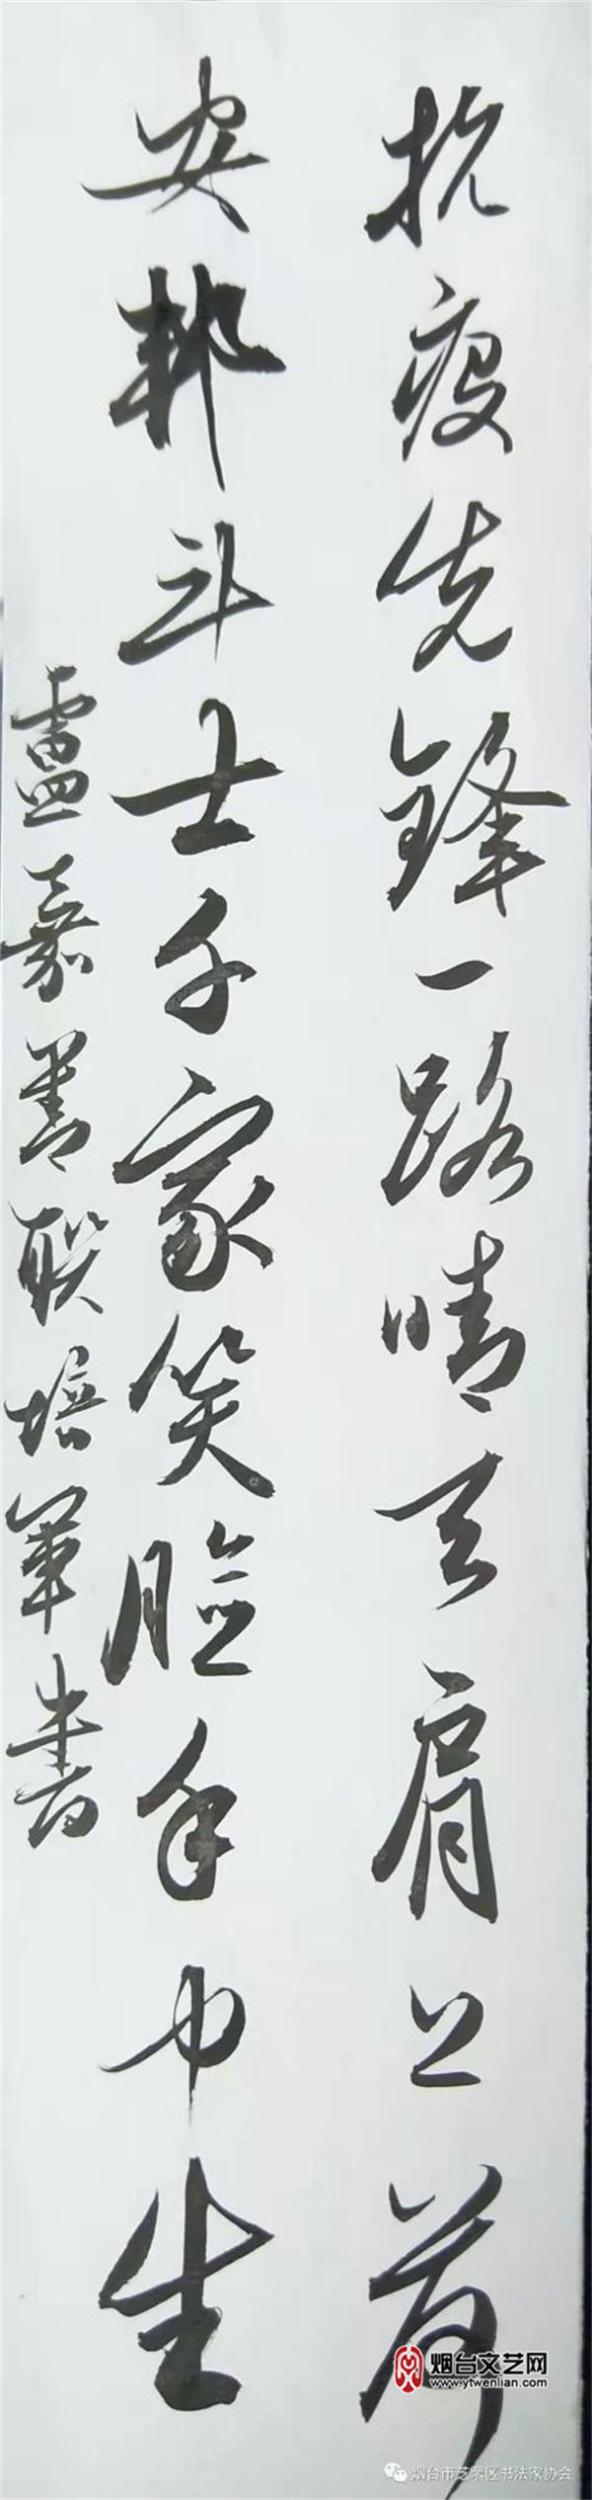 抗疫先锋一路晴天肩上荷
安邦斗士千家笑脸手中生
盧嘉善联培军书
烟台文艺网
www.ytwenlian.com
烟台市芝罘区书法家协会